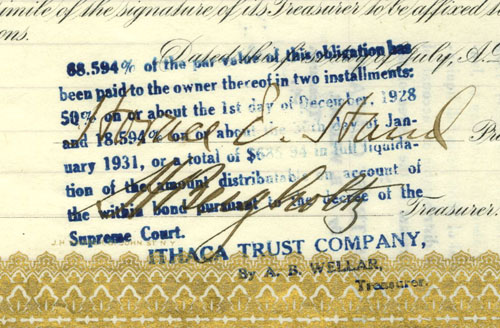 imile of the signature of its Treasurer to be affixed
ons.
Dated the day of July, A.
68.594% of the par value of this obligation has
been paid to the owner thereof in two installments:
50% on or about the 1st day of December, 1928
and 18.594% on or about the day of Jan-
uary 1931, or a total of $685.94 in full liquida-
tion of the amount distributable on account of
the within bond pursuant to the decree of the
Supreme Court.
Treasurer.
ITHACA TRUST COMPANY,
By A. B. WELLAR,
Treasurer.